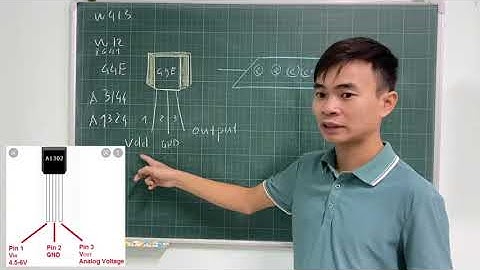 W413
W12
44E
A3144
A1324
49E
1 2 3
Vdd GND output
A1302
Pin 1
Pin 2
Pin 3
VIN
GND
VOUT
4.5-6V
Analog Voltage